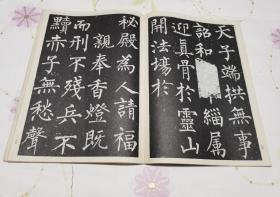 天子端拱無事
詔和緇属
迎真骨於靈山
開法場於
秘殿為人請福
親奉香燈既
而刑不殘兵不
黷赤子無愁聲